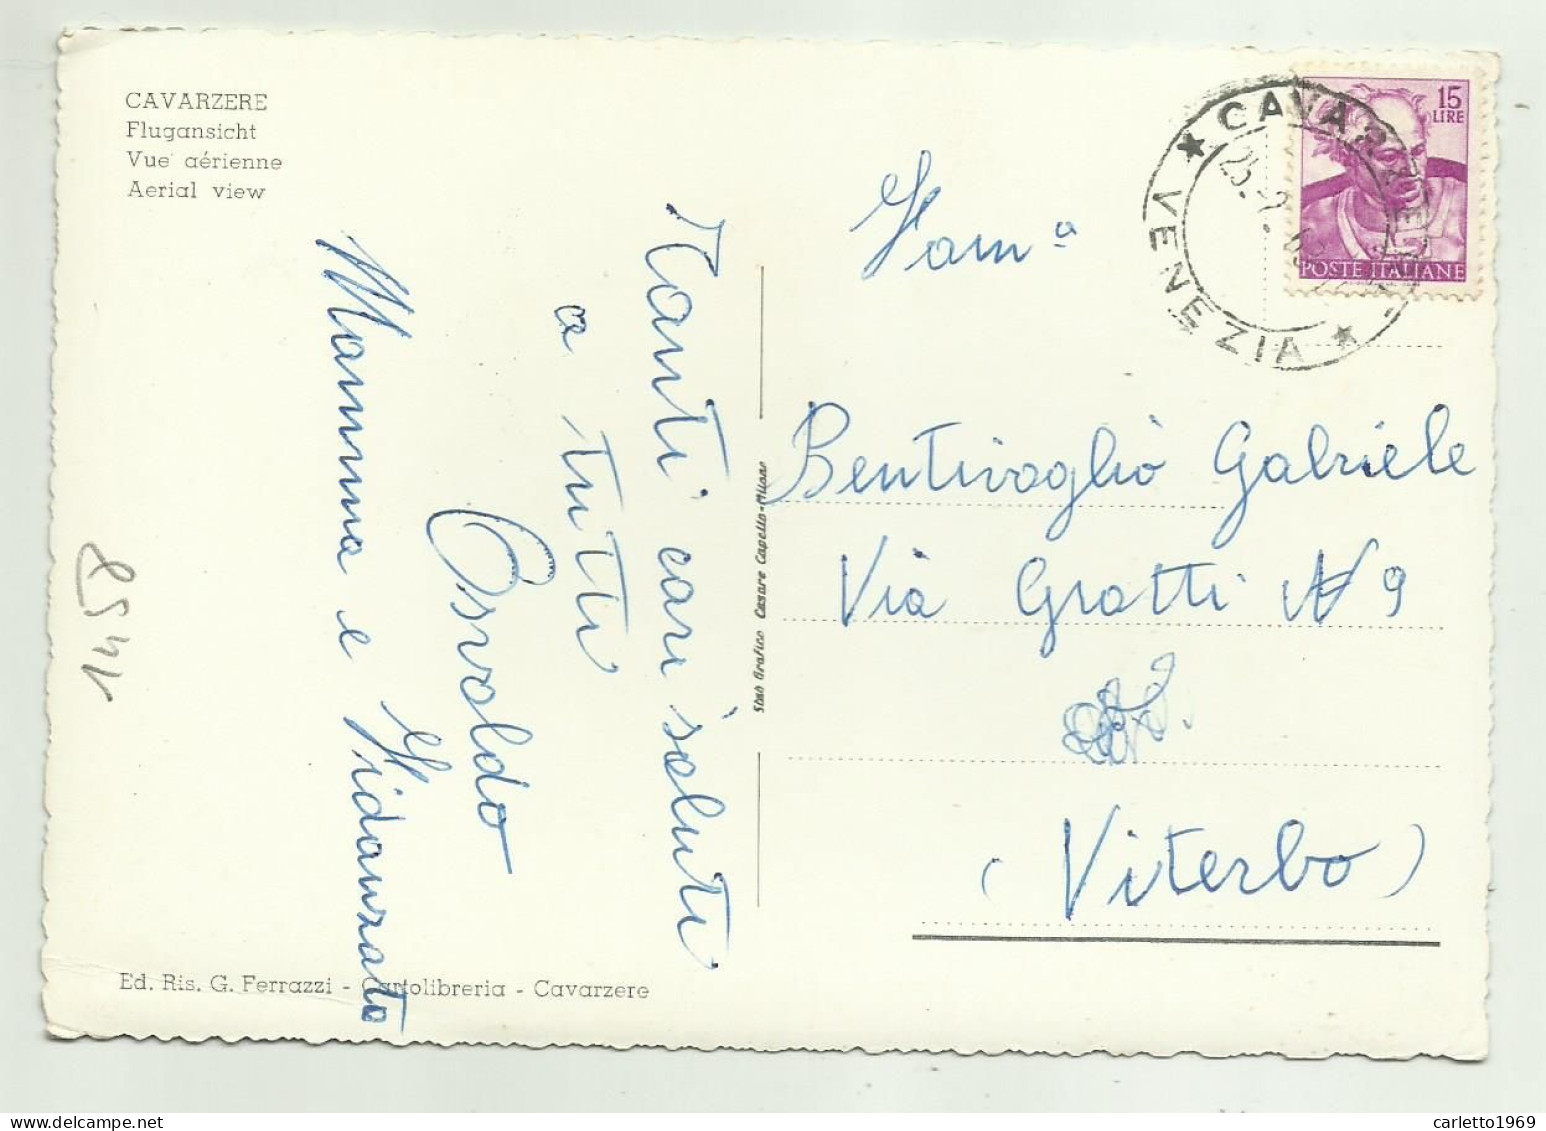 CAVARZERE
Flugansicht
Vue aérienne
Aerial view
Tanti cari saluti
a tutti
Osvaldo
Mamma e Fidanzata
Ed. Ris. G. Ferrazzi - Cartolibreria - Cavarzere
Stab Grafico Cesare Capello-Milano
15
LIRE
POSTE ITALIANE
CAVARZERE
VENEZIA
25.-2
Fam a
Bentivoglio Gabriele
Via Gratti N 9
(Viterbo)
delcampe.net
carletto1969